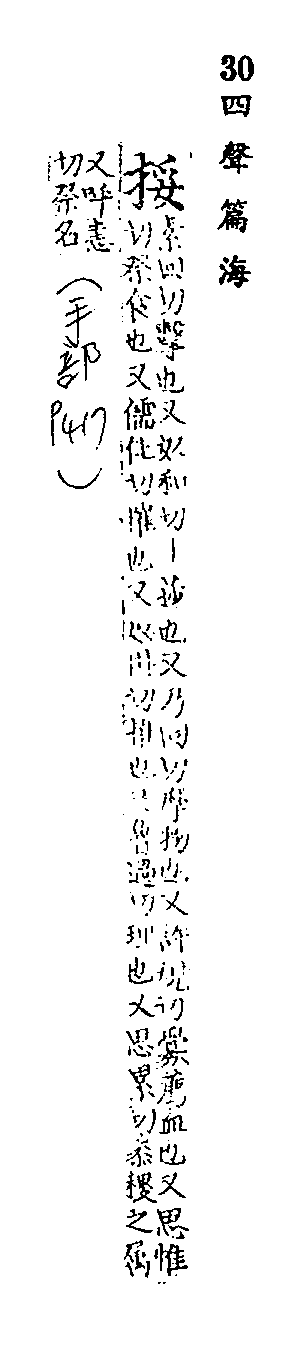 30四聲篇海
挼
素回切擊也又奴和切｜莎也又乃回切摩物也又許規切祭薦血也又思惟
切祭食也又儒佳切摧也又切也又切理也又思累切黍稷之屬
又呼恚
切祭名
（手部P417）